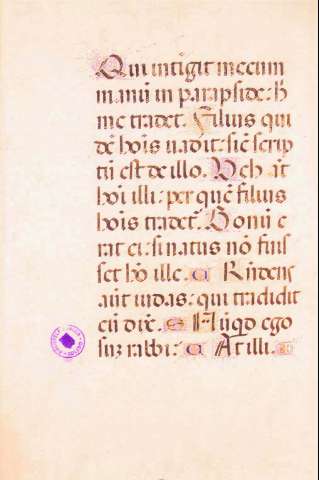 Qui intigit mecum
manū in parapside: h̄
me tradet. Filius qui
dē hoīs uadit: sic̄ scrip
tū est de illo. Veh aūt
hoī illi: per quē filius
hoīs tradet̄. Bonū e
rat ei: si natus nō fuis
set hō ille. Rn̄dens
aūt iudas: qui tradidit
eū dix̄. Nūqd ego
suz rabbi: At illi.